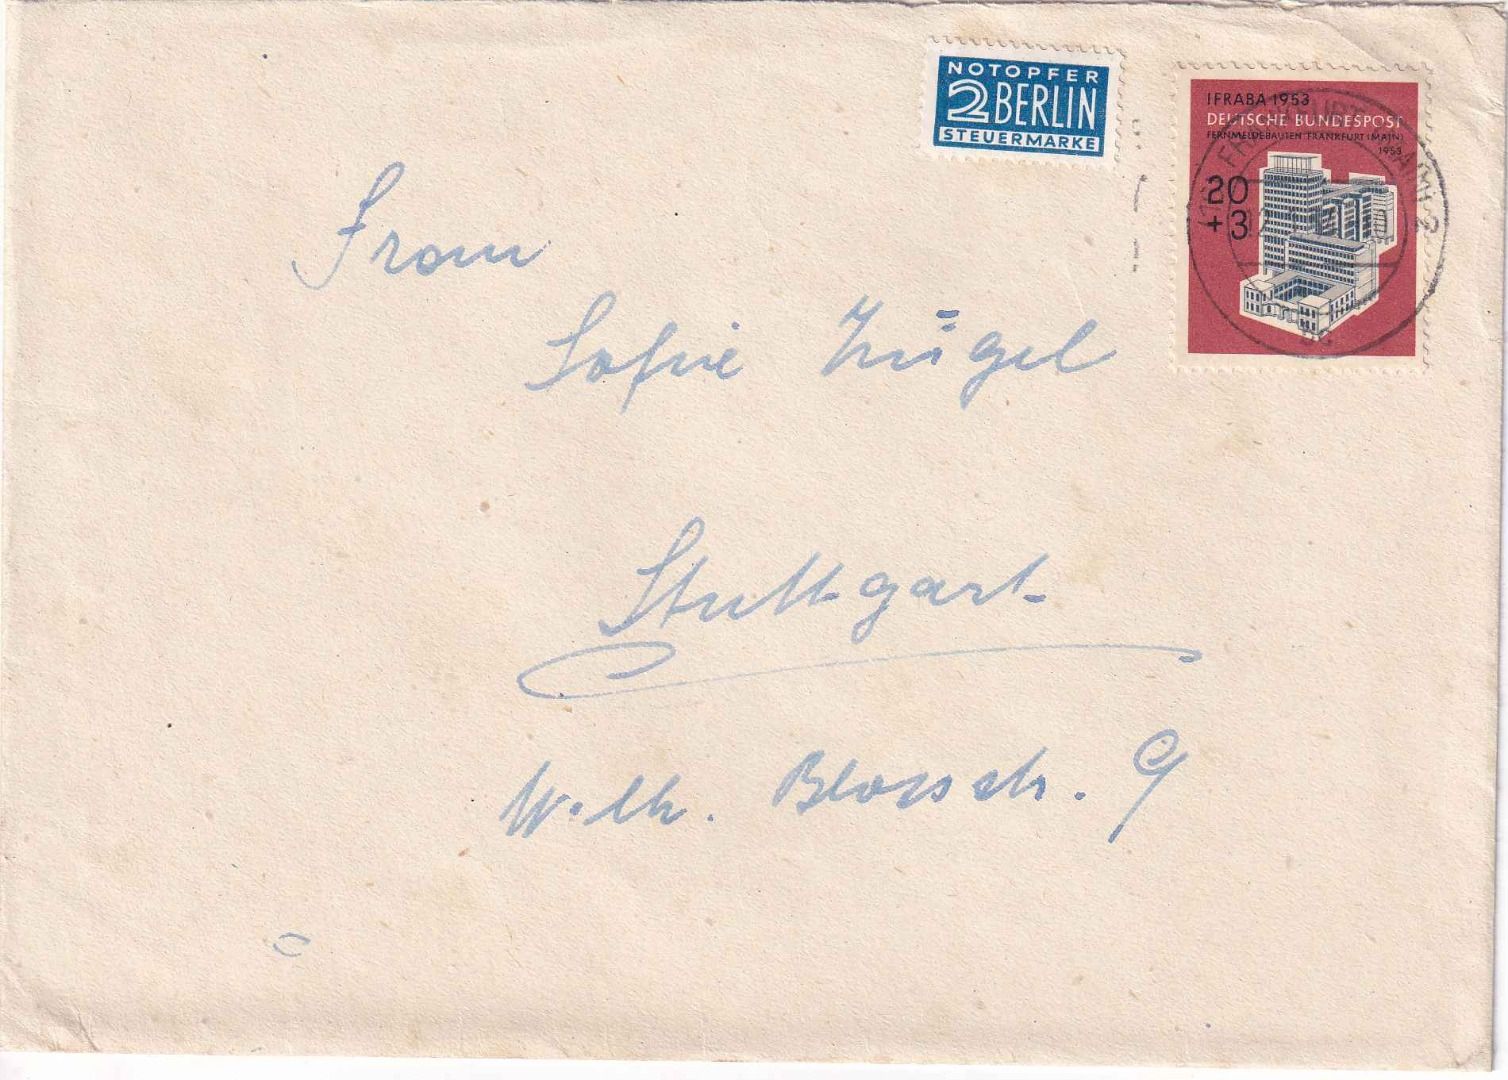 NOTOPFER
2 BERLIN
STEUERMARKE
IFRABA 1953
DEUTSCHE BUNDESPOST
FERNMELDEBAUTEN FRANKFURT (MAIN)
1953
20
+3
Sofie Zügel
Stuttgart
Wilh. 9